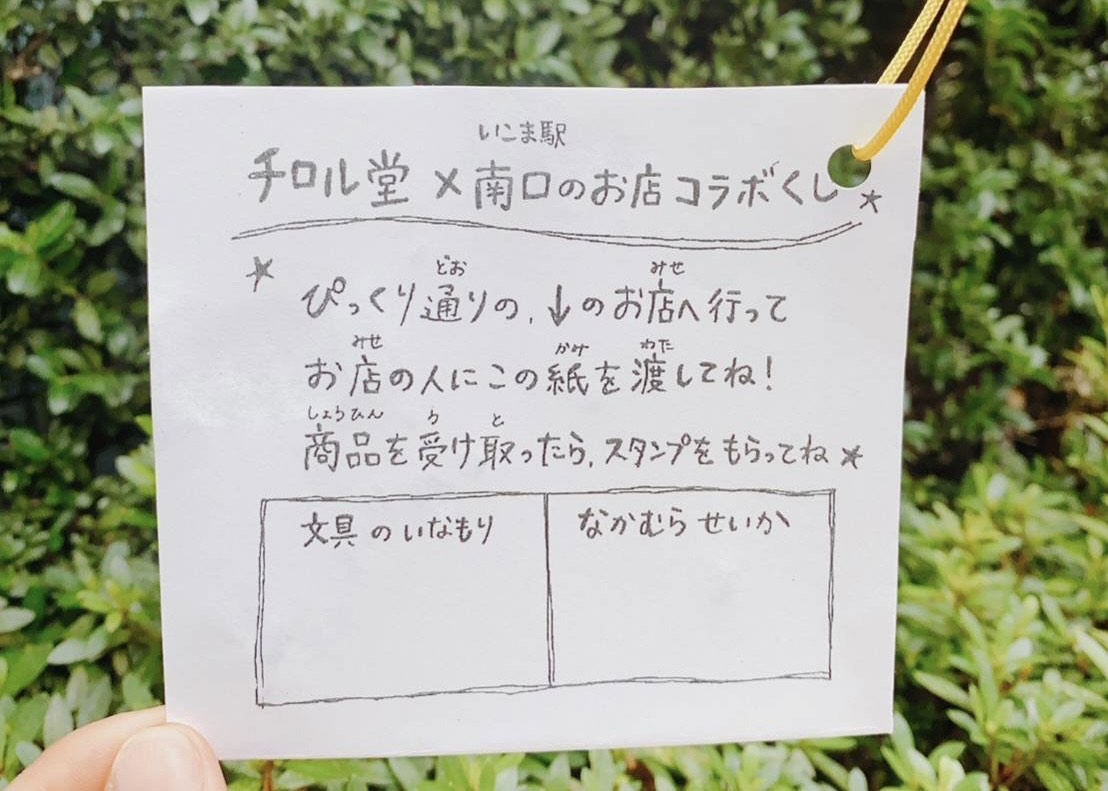 いこま駅
チロル堂×南口のお店コラボくじ☆
☆ ぴっくり通りの、↓のお店へ行って
どお みせ
お店の人にこの紙を渡してね!
みせ かみ わた
商品を受け取ったら、スタンプをもらってね☆
しょうひん う と
文具のいなもり
なかむらせいか